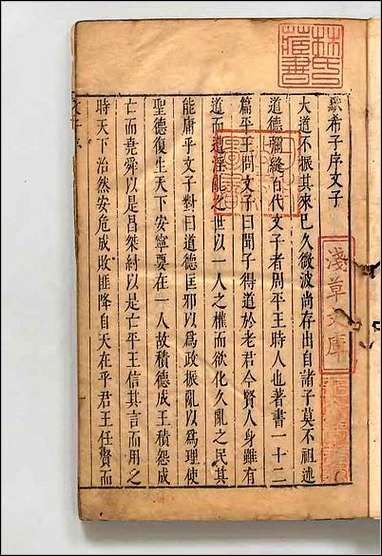 默希子序文子
大道不振其來已久微波尚存出自諸子莫不祖述
道德彌縫百代文子者周平王時人也著書一十二
篇平王問文子曰聞子得道於老君今賢人身雖有
道而遭淫亂之世以一人之權而欲化久亂之民其
能庸乎文子對曰道德匡邪以為政振亂以為理使
聖德復生天下安寧要在一人故積德成王積怨成
亡而堯舜以是昌桀紂以是亡平王信其言而用之
時天下治然安危成敗匪降自天在乎君王任賢而
林氏藏書
淺草文庫